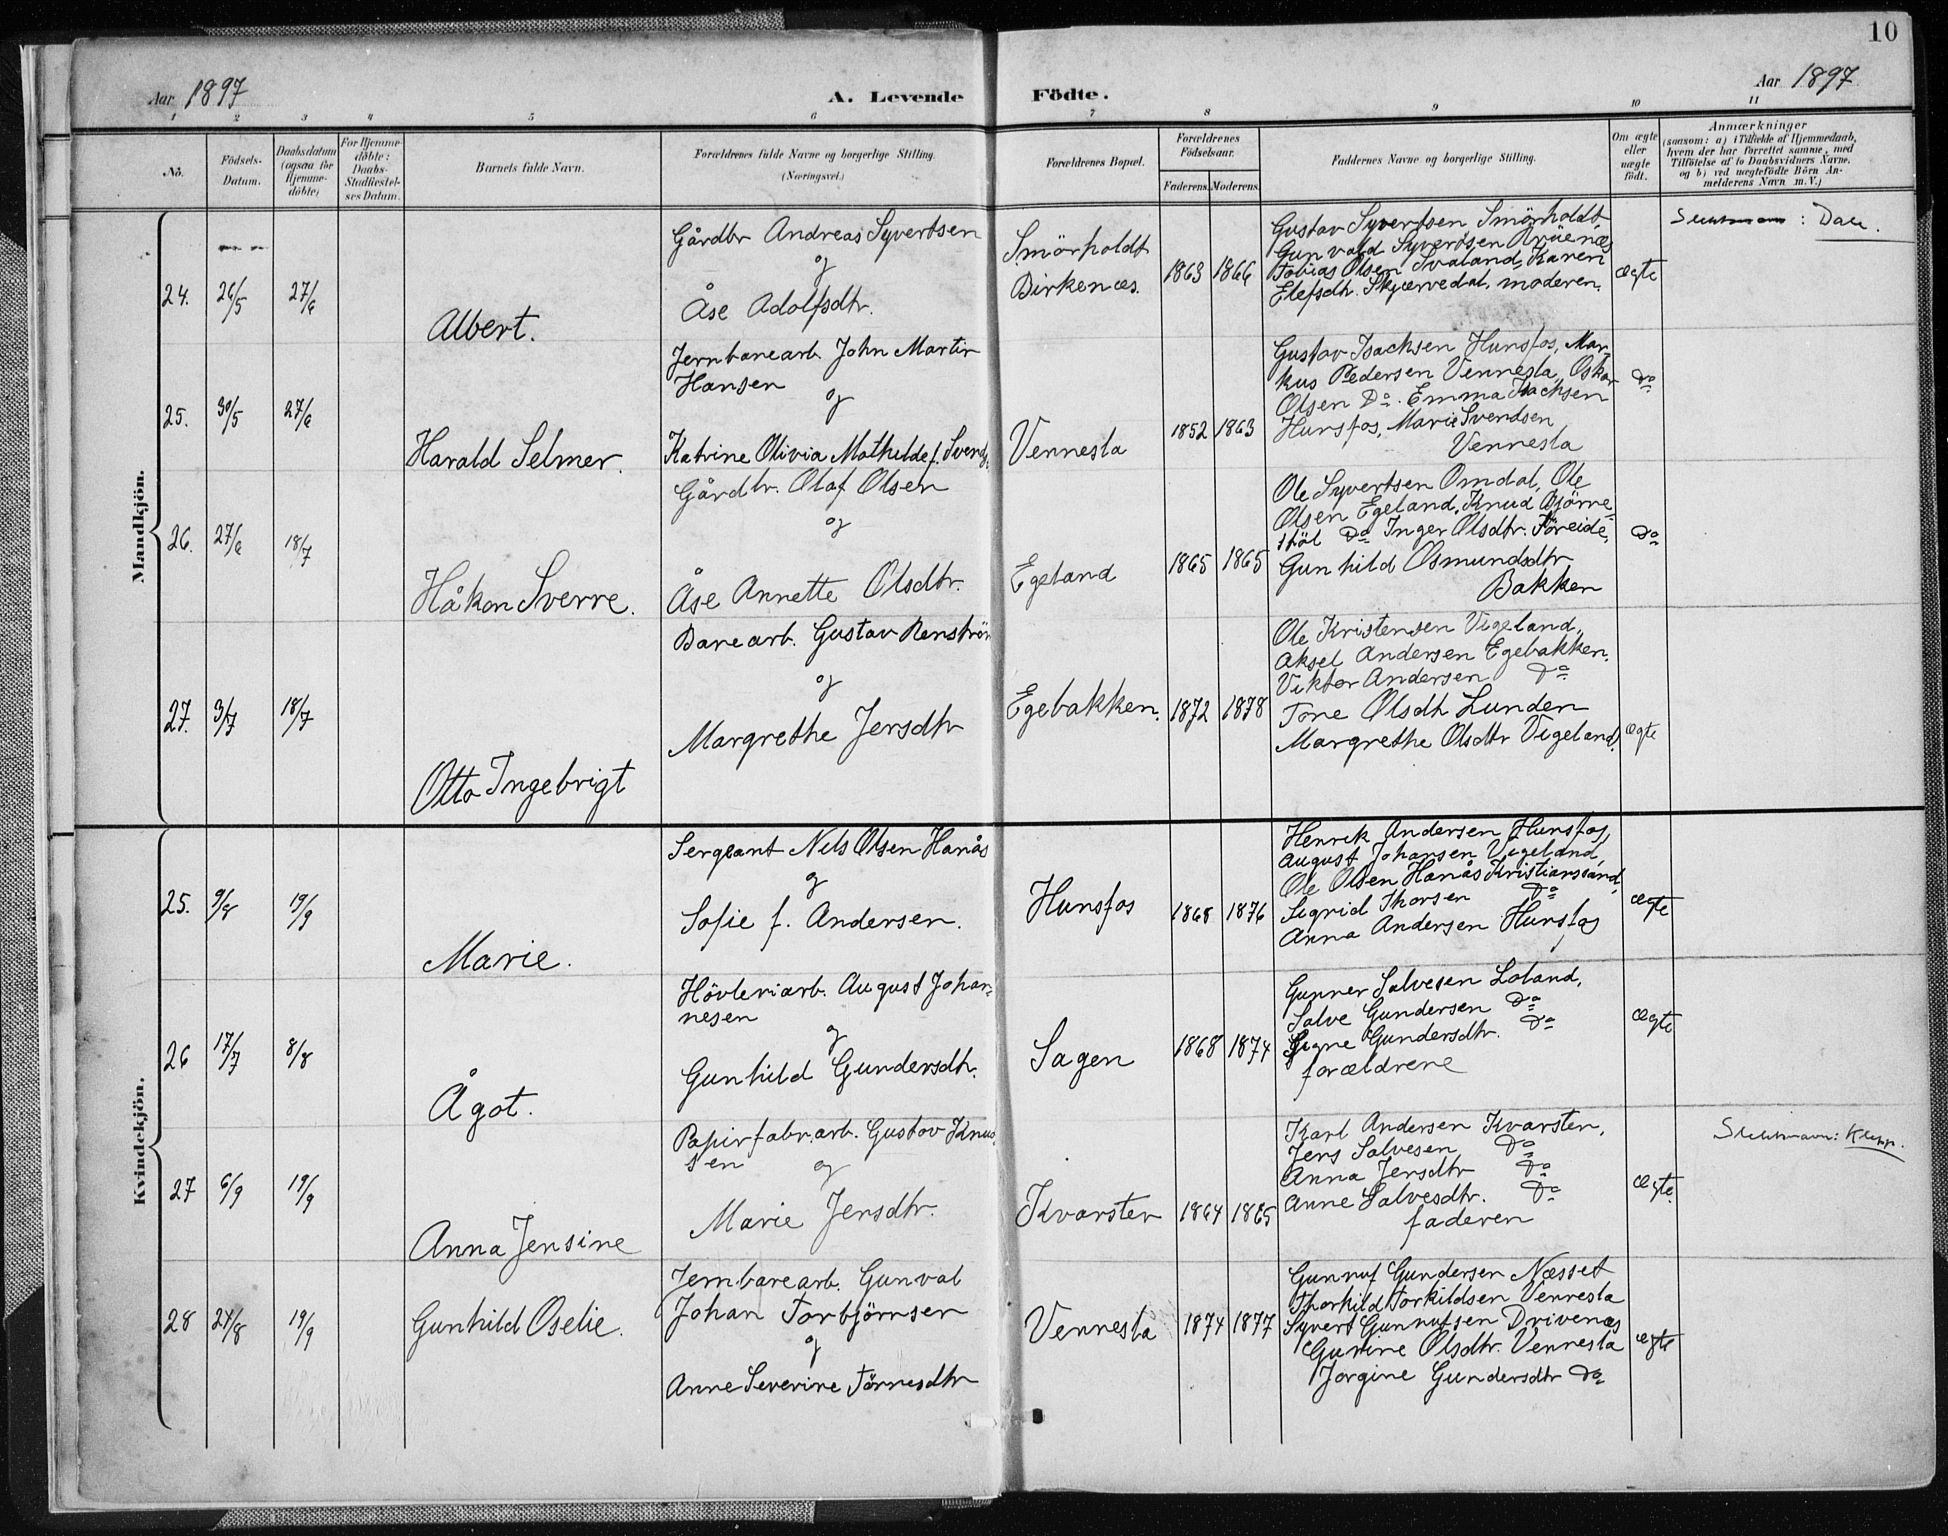 10
Aar 1897
A. Levende Födte.
Aar 1897
1 2 3 4 5 6 7 8 9 10 11
No.
Födsels-
Datum.
Daabsdatum
(ogsaa for
Hjemme-
döbte)
For Hjemme-
döbte:
Daabs-
Stadfæstel-
ses Datum.
Barnets fulde Navn.
Forældrenes fulde Navne og borgerlige Stilling.
(Næringsvei.)
Forældrenes Bopæl.
Forældrenes
Födselsaar.
Faderens. Moderens.
Faddernes Navne og borgerlige Stilling.
Om ægte
eller
uægte
födt.
Anmærkninger
(saasom: a) i Tilfælde af Hjemmedaab,
hvem der har forrettet samme, med
Tilföielse af to Daabsvidners Navne,
og b) ved uægtefödte Börn An-
melderens Navn m. V.)
Mandkjön.
24. 26/5 27/6
Albert.
Gårdbr Andreas Syvertsen
og
Åse Adolfsdtr.
Smörholdt
Birkenæs.
1863 1866
Gustav Syvertsen Smörholdt,
Gunvald Syvertsen
Tobias Olsen Svaland, Karen
Elefsdtr. Skjærvedal, moderen.
ægte
: Dale.
25. 30/5 27/6
Harald Selmer.
Jernbanearb. John Martin
Hansen
og
Katrine Olivia Mathilde f. Svends
Vennesla
1852 1863
Gustav Isachsen Hunsfos, Mar-
kus Pedersen Vennesla, Oskar
Olsen Do. Emma Isachsen
Hunsfos, Marie Svendsen
Vennesla
Do
26. 27/6 18/7
Håkon Sverre.
Gårdbr. Olaf Olsen
og
Åse Annette Olsdtr.
Egeland
1865 1865
Ole Syvertsen Omdal, Ole
Olsen Egeland, Knud Bjørne-
stöl Do Inger Olsdtr. Föreide,
Gunhild Osmundsdtr
Bakken
Do
27. 3/7 18/7
Otto Ingebrigt
Banearb. Gustav Renström
og
Margrethe Jensdtr
Egebakken.
1872 1878
Ole Kristensen Vigeland,
Aksel Andersen Egebakken.
Viktor Andersen Do
Tone Olsdtr Lunden
Margrethe Olsdtr Vigeland.
ægte
Kvindekjön.
25. 9/8 19/9
Marie.
Sergeant Nels Olsen Hanås
og
Sofie f. Andersen.
Hunsfos
1868 1876
Henrik Andersen Hunsfos,
August Johansen Vigeland,
Ole Olsen Hanås Kristianssand,
Sigrid Thorsen Do
Anna Andersen Hunsfos
ægte
26 17/7 8/8
Ågot.
Hövleriarb. August Johan-
nesen
og
Gunhild Gundersdtr.
Sagen
1868 1874
Gunner Salvesen Loland,
Salve Gundersen Do
Signe Gundersdtr. Do
forældrene
ægte
27 6/9 19/9
Anna Jensine
Papirfabr.arb. Gustav Knud
sen
og
Marie Jensdtr.
Kvarsten
1864 1865
Karl Andersen Kvarsten,
Jens Salvesen Do
Anna Jensdtr Do
Anne Salvesdtr. Do
faderen
ægte.
: Klepp.
28 24/8 19/9
Gunhild Oselie.
Jernbanearb. Gunval
Johan Torbjörnsen
og
Anne Severine Tönnesdtr
Vennesla
1874 1877
Gunnuf Gundersen Næsset
Thorkild Torkildsen Vennesla
Syvert Gunnufsen Drivenæs
Gunine Olsdtr. Vennesla
Jorgine Gundersdtr Do
ægte